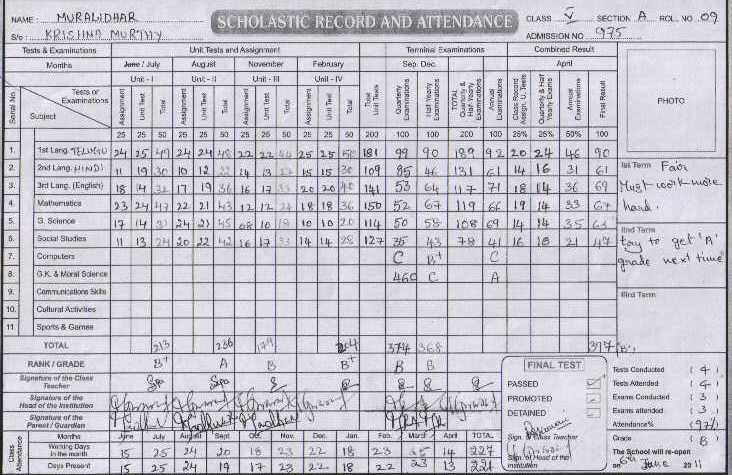 NAME : MURALIDHAR
SCHOLASTIC RECORD AND ATTENDANCE
CLASS V SECTION A ROLL NO 09
S/o : KRISHNA MURTHY
ADMISSION NO 975
Tests & Examinations Unit Tests and Assignment Terminal Examinations Combined Result
Months June / July August November February Sep. Dec. April
Unit - I Unit - II Unit - III Unit - IV
Serial No. Tests or Examinations Subject
Assignment Unit Test Total Assignment Unit Test Total Assignment Unit Test Total Assignment Unit Test Total Total Unit Tests Quarterly Examinations Half Yearly Examinations TOTAL Quarterly & Half Yearly Examinations Annual Examinations Class Record Assign. U. Tests Quarterly & Half Yearly Exams Annual Examinations Final Result
PHOTO
25 25 50 25 25 50 25 25 50 25 25 50 200 100 100 200 100 25% 25% 50% 100
1. 1st Lang. TELUGU 24 25 49 24 24 48 22 22 44 25 25 50 181 99 90 189 92 20 24 46 90
2. 2nd Lang. HINDI 11 19 30 10 12 22 14 13 15 15 30 109 85 46 131 61 14 16 31 61
3. 3rd Lang. (English) 18 14 32 17 19 36 16 17 33 20 20 40 141 53 64 117 71 18 14 36 69
4. Mathematics 23 24 47 22 21 43 12 12 24 18 18 36 150 52 67 119 66 19 14 33 67
5. G. Science 17 14 31 24 21 45 08 10 18 10 10 20 114 50 58 108 69 14 14 35 63
6. Social Studies 11 13 24 20 22 42 16 17 33 14 14 28 127 35 43 78 41 16 10 21 47
7. Computers C B+ C
8. G.K. & Moral Science C A
9. Communications Skills
10. Cultural Activities
11. Sports & Games
TOTAL 213 236 179 204 374 368 397
RANK / GRADE B+ A B B+ B B 'B'
Ist Term Fair
Must work more
hard.
IInd Term
try to get 'A'
grade next time
IIIrd Term
Signature of the Class Teacher
Signature of the Head of the Institution
Signature of the Parent / Guardian
FINAL TEST
PASSED
PROMOTED
DETAINED
Sign. of Class Teacher
Sign. of Head of the Institution
Tests Conducted ( 4 )
Tests Attended ( 4 )
Exams Conducted ( 3 )
Exams attended ( 3 )
Attendance% (97%)
Grade ( B )
The School will re-open
on 6th June 2011
Class Attendance
Months June July August Sept. Oct. Nov. Dec. Jan. Feb. March April TOTAL
Working Days in the Month 15 25 24 20 18 23 22 18 23 25 14 227
Days Present 15 25 24 19 17 23 22 18 22 23 13 221